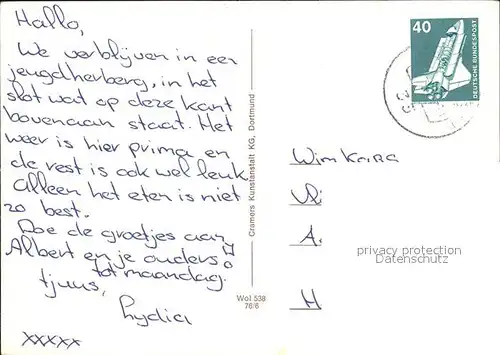 Hallo,
We verblijven in een
jeugdherberg, in het
slot wat op deze kant
bovenaan staat. Het
weer is hier prima en
de rest is ook wel leuk
Alleen het eten is niet
zo best.
Doe de groetjes aan
Albert en je ouders
tot maandag.
tjuus,
Lydia
xxxxx
Cramers Kunstanstalt KG, Dortmund
Wol 538
76/6
40
DEUTSCHE BUNDESPOST
Wim
A.
H
privacy protection
Datenschutz